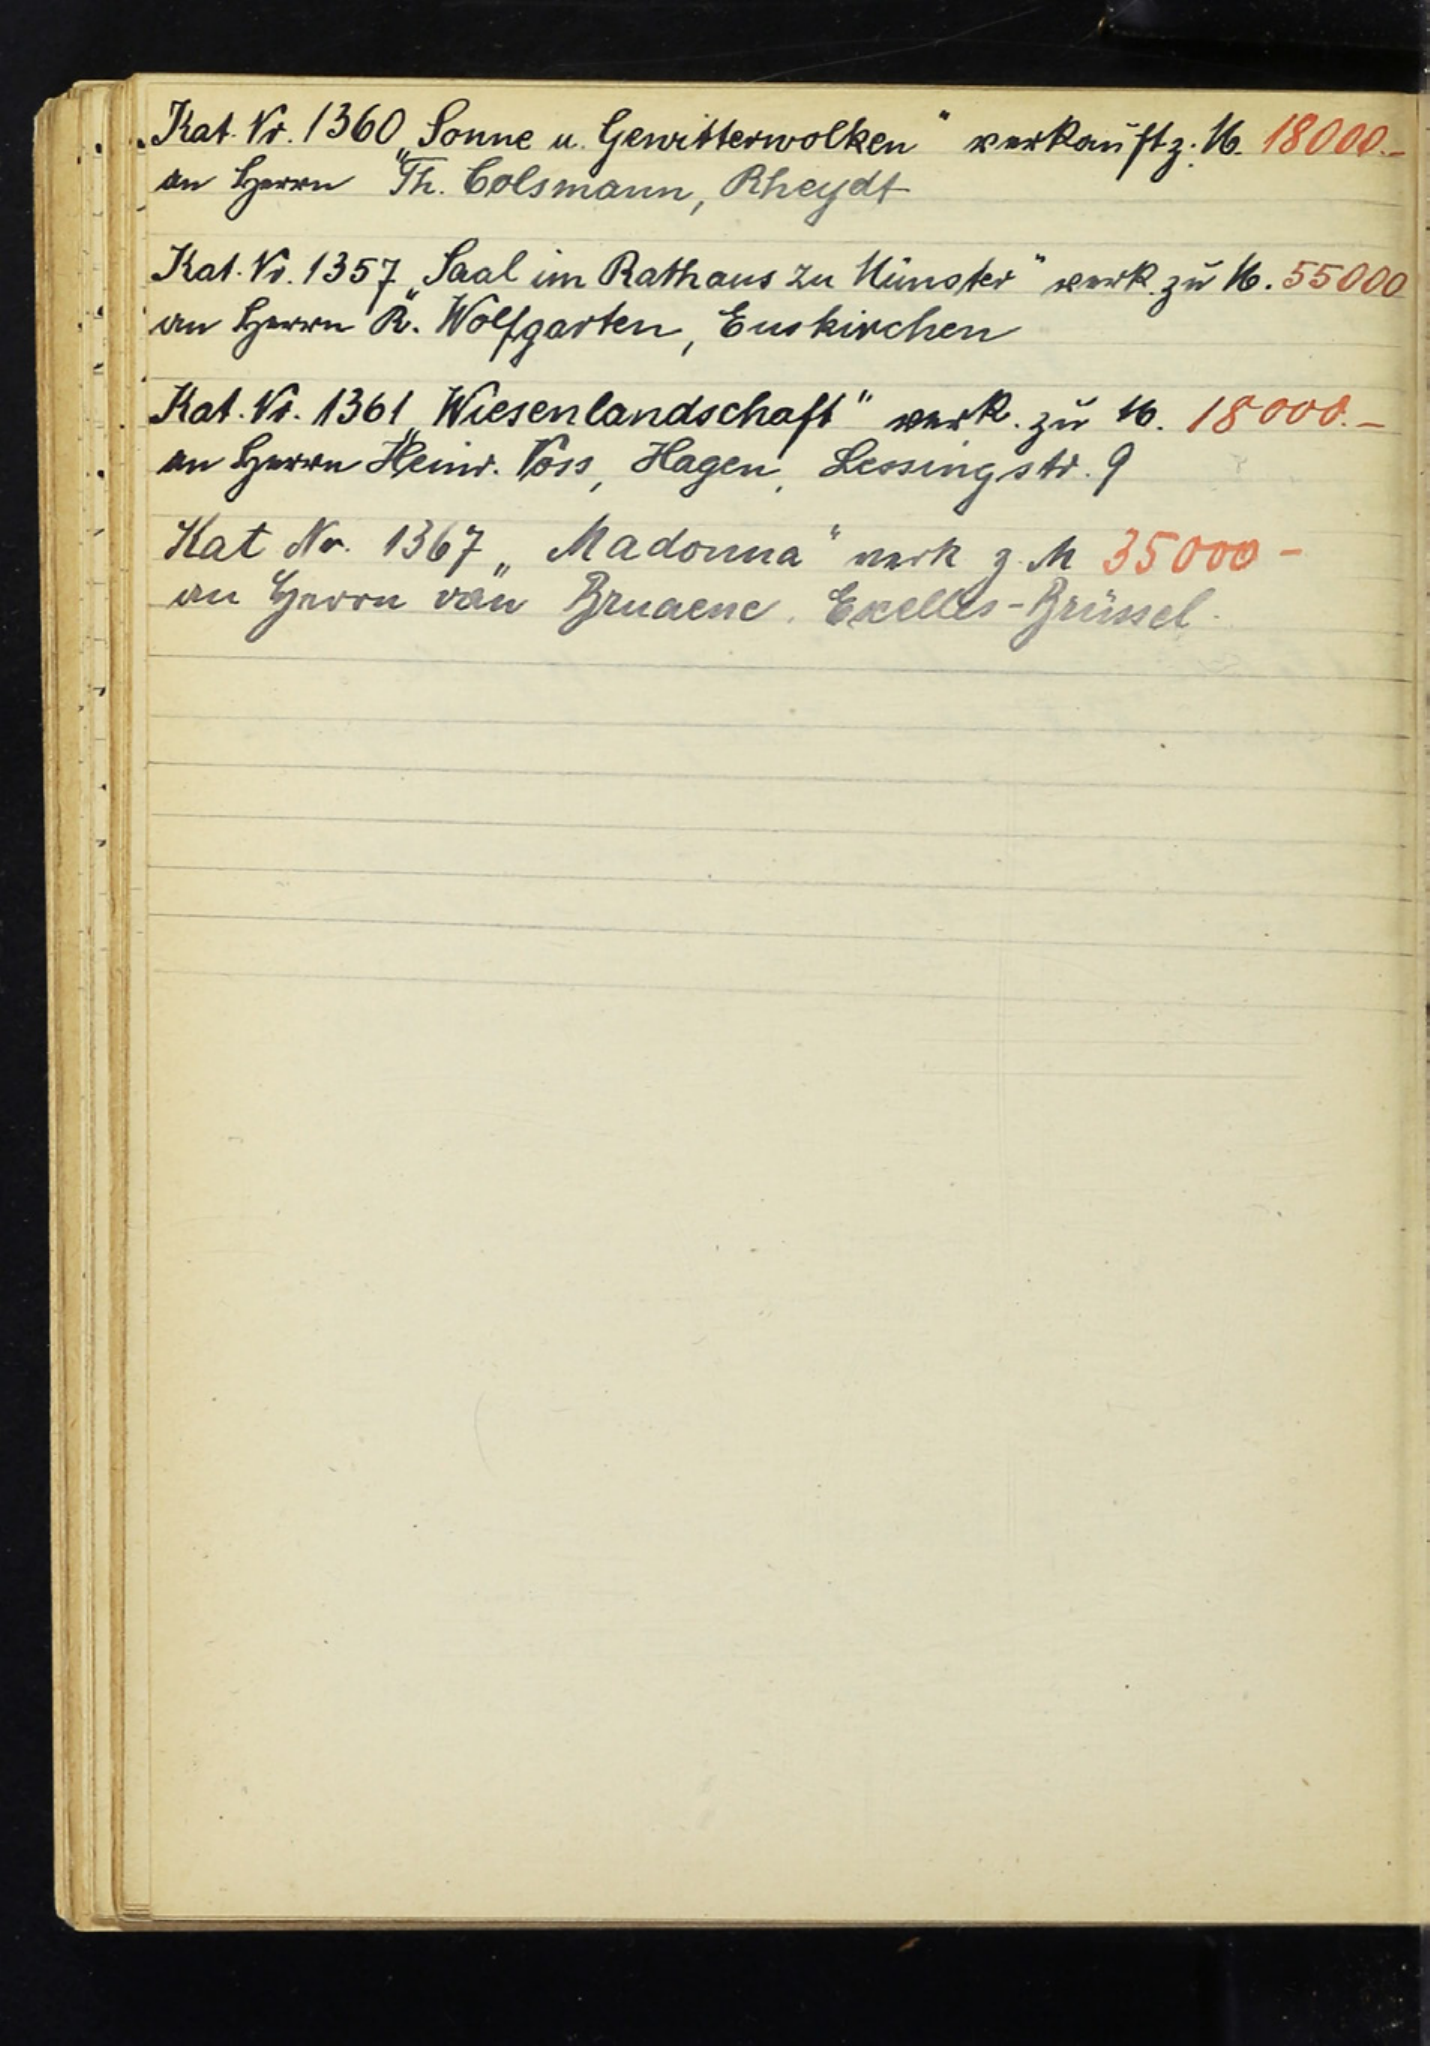 Kat. Nr. 1360 „Sonne u. Gewitterwolken" verkauft z. M. 18000.—
an Herrn Th. Colsmann, Rheydt
Kat. Nr. 1357 „Saal im Rathaus zu Münster" verk. zu M. 55000
an Herrn R. Wolfgarten, Euskirchen
Kat. Nr. 1361 „Wiesenlandschaft" verk. zu M. 18000.—
an Herrn Heinr. Voss, Hagen, Lessingstr. 9
Kat Nr. 1367 „Madonna" verk z. M 35000 —
an Herrn van Bruaene. Exelles-Brüssel.